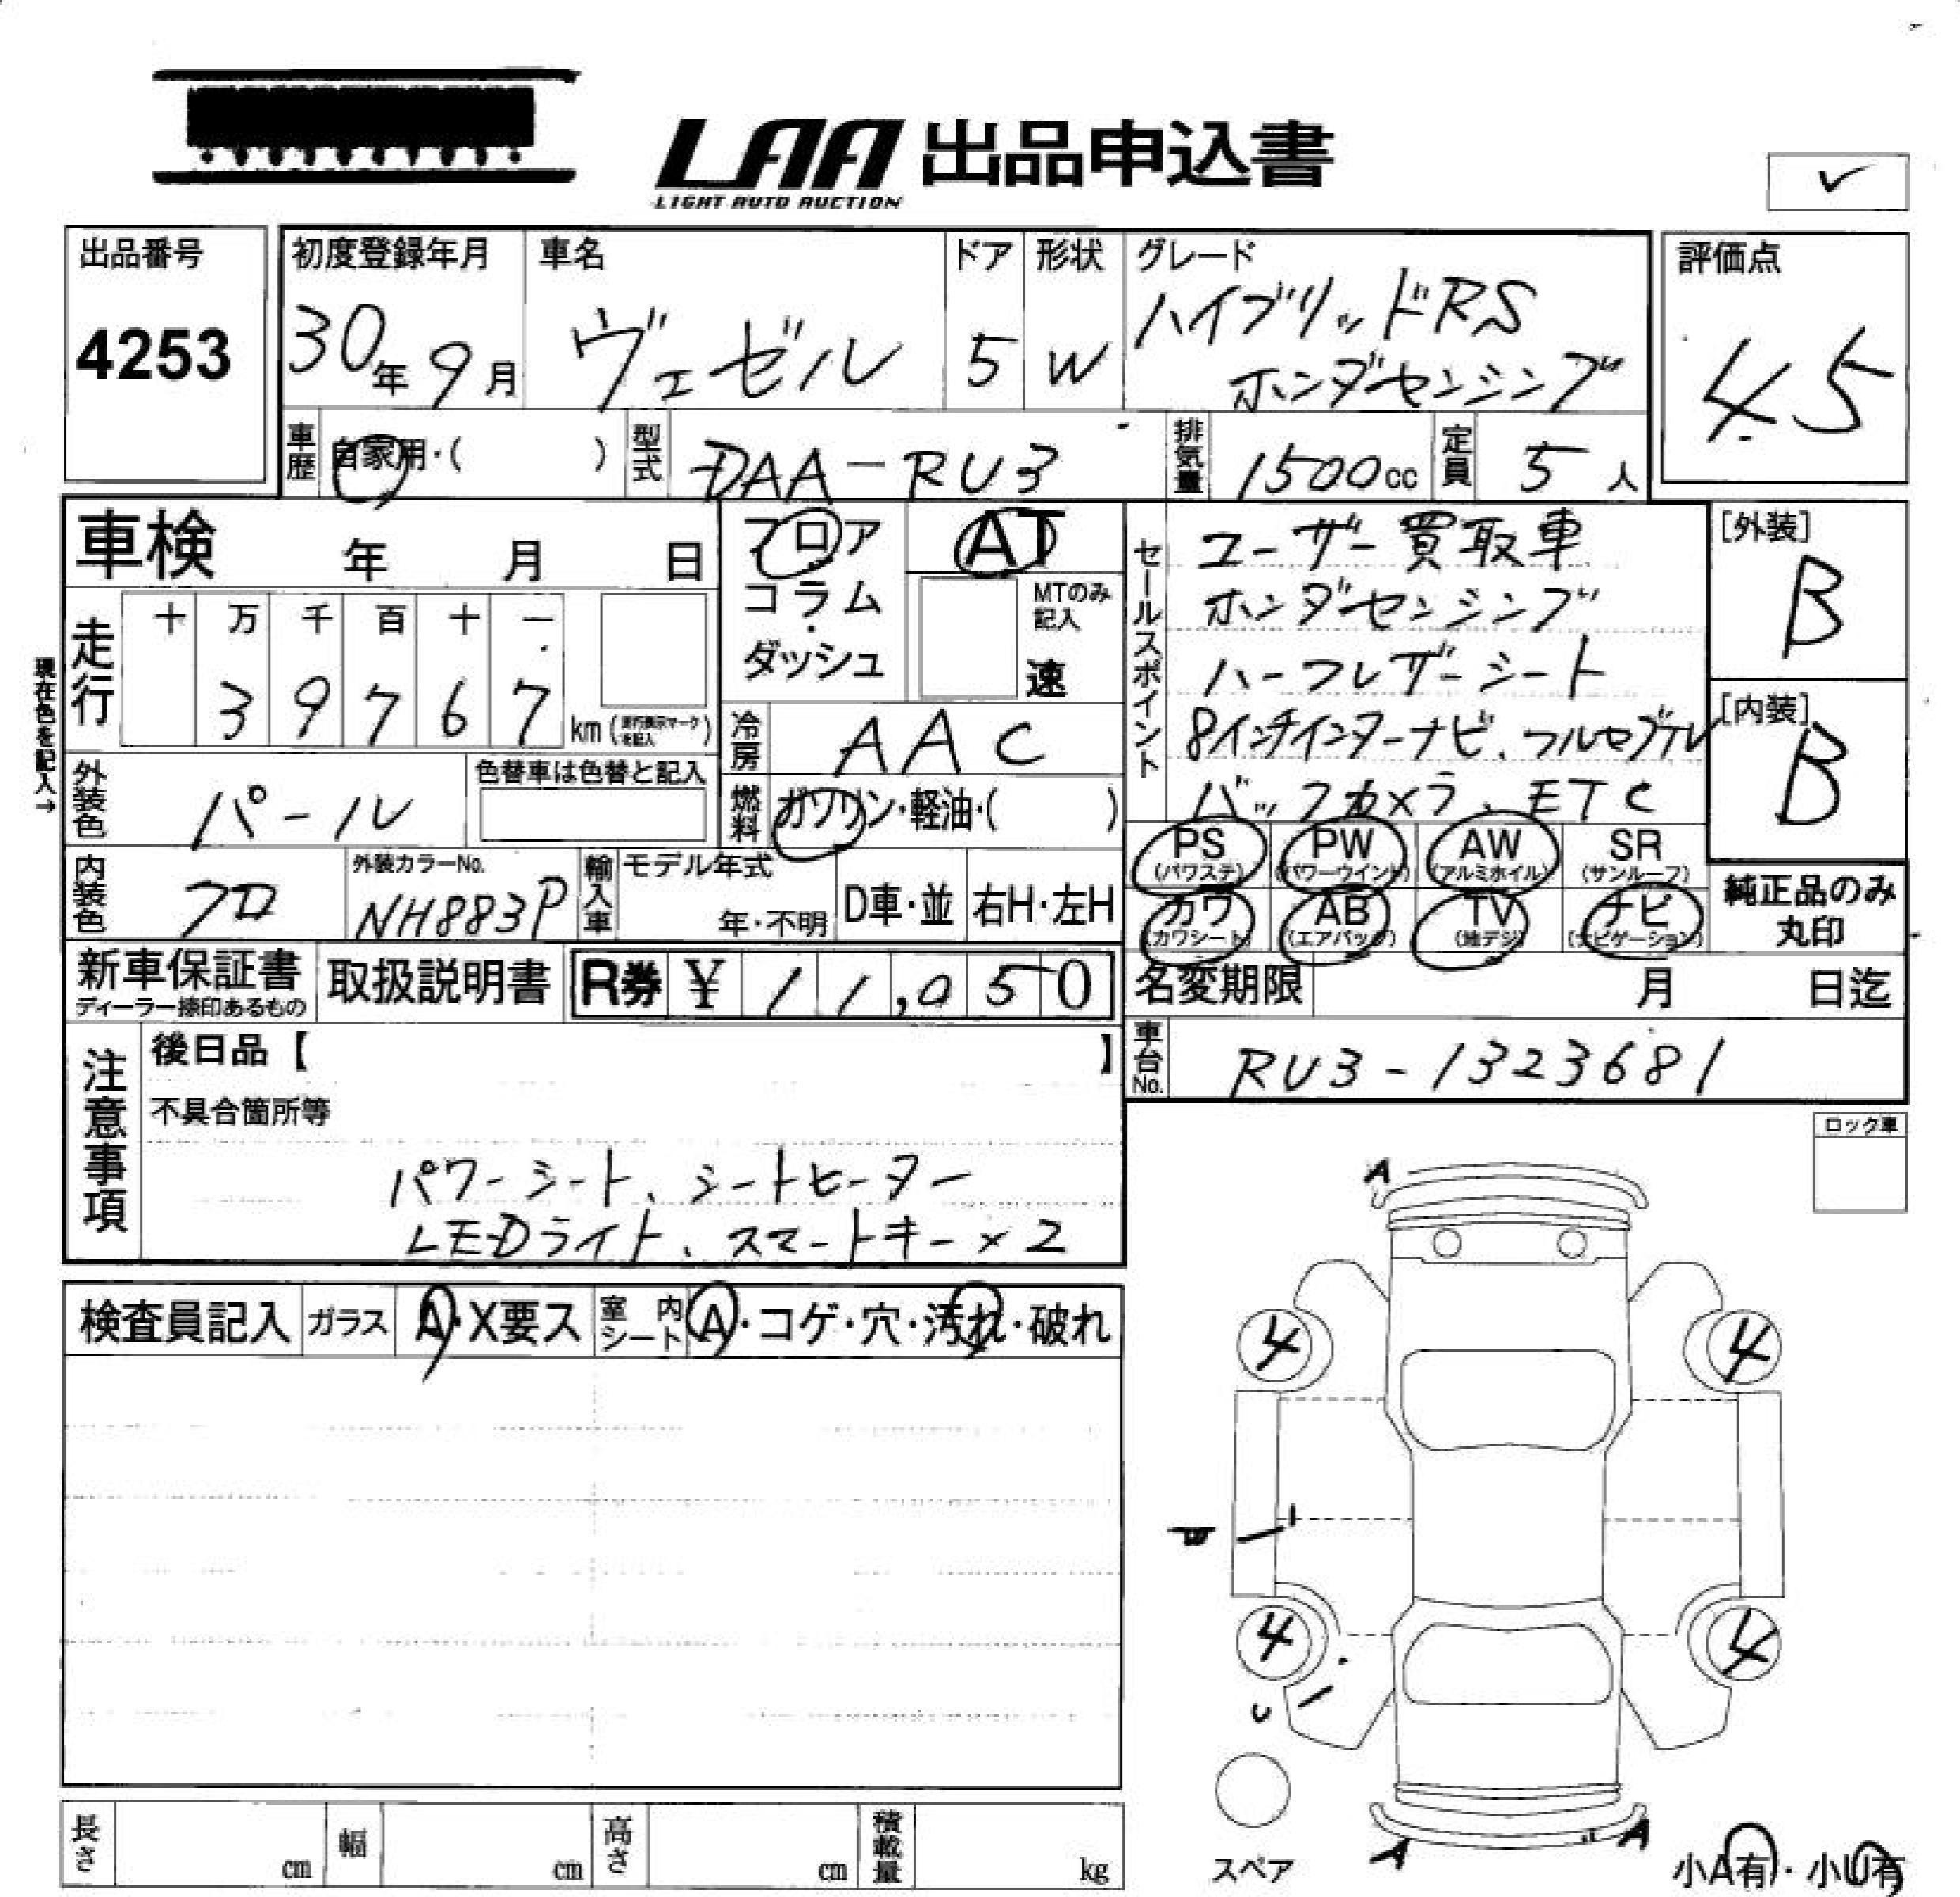 LAA 出品申込書
LIGHT AUTO AUCTION
出品番号
4253
初度登録年月
30年 9月
車名
ヴェゼル
ドア
5
形状
W
グレード
ハイブリッドRS
ホンダセンシング
評価点
4.5
車歴
自家用・( )
型式
DAA-RU3
排気量
1500cc
定員
5人
車検 年 月 日
フロア
コラム・
ダッシュ
AT
MTのみ
記入
速
セールスポイント
ユーザー買取車
ホンダセンシング
ハーフレザーシート
8インチインターナビ、フルセグTV
バックカメラ、ETC
[外装]
B
[内装]
B
現在色を記入→
走行
十 万 千 百 十 一
3 9 7 6 7
km (走行表示マークを記入)
冷房
AAC
外装色
パール
色替車は色替と記入
燃料
ガソリン・軽油・( )
PS (パワステ)
PW (パワーウインド)
AW (アルミホイル)
SR (サンルーフ)
カワ (カワシート)
AB (エアバッグ)
TV (地デジ)
ナビ (ナビゲーション)
純正品のみ
丸印
内装色
クロ
外装カラーNo.
NH883P
輸入車
モデル年式
年・不明
D車・並
右H・左H
新車保証書
ディーラー捺印あるもの
取扱説明書
R券 ¥ 11,050
名変期限 月 日迄
車台No.
RU3-1323681
注意事項
後日品【 】
不具合箇所等
パワーシート、シートヒーター
LEDライト、スマートキー×2
ロック車
検査員記入
ガラス
A・X要ス
室内
シート
A・コゲ・穴・汚れ・破れ
A
4 4
4 4
U
A A
スペア
小A有・小U有
長さ cm
幅 cm
高さ cm
積載量 kg